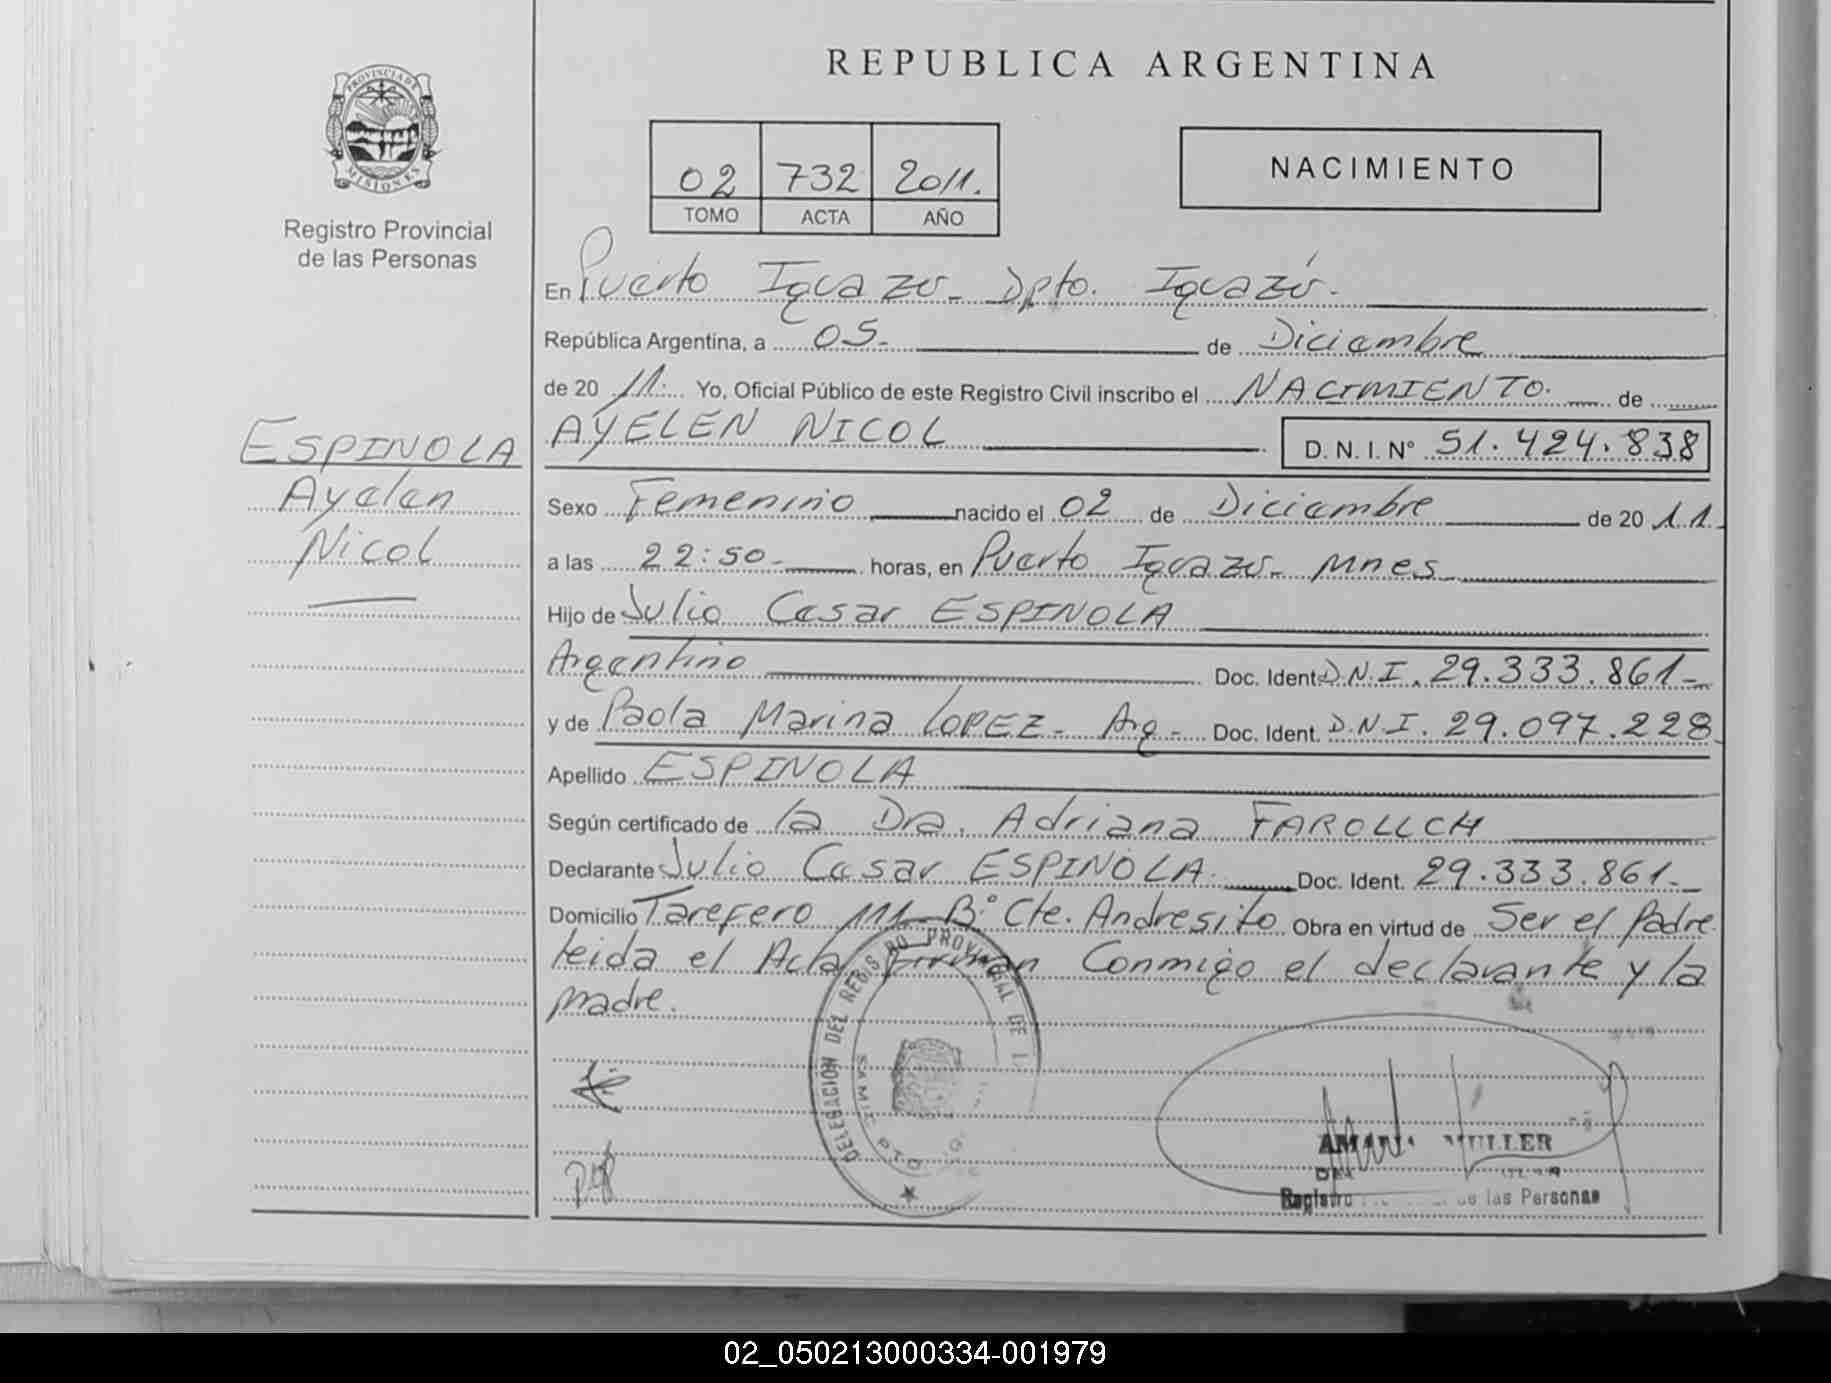 REPUBLICA ARGENTINA
PROVINCIA DE
MISIONES
Registro Provincial
de las Personas
02 732 2011.
TOMO ACTA AÑO
NACIMIENTO
En Puerto Iguazu - Dpto. Iguazú.
República Argentina, a 05- de Diciembre
de 20 11. Yo, Oficial Público de este Registro Civil inscribo el NACIMIENTO. de
AYELEN NICOL D. N. I. Nº 51.424.838
ESPINOLA
Ayelen
Nicol
Sexo Femenino nacido el 02 de Diciembre de 20 11.
a las 22:50- horas, en Puerto Iguazu- Mnes
Hijo de Julio Cesar ESPINOLA
Argentino Doc. Ident. D.N.I. 29.333.861-
y de Paola Marina LOPEZ- Arg- Doc. Ident. D.N.I. 29.097.228
Apellido ESPINOLA
Según certificado de la Dra. Adriana
Declarante Julio Cesar ESPINOLA. Doc. Ident. 29.333.861-
Domicilio Tarefero 111 B.º Cte. Andresito Obra en virtud de Ser el Padre.
leida el Acta Firman Conmigo el declarante y la
madre.
DELEGACION DEL REGISTRO PROVINCIAL DE L
MULLER
Registro de las Personas
02_050213000334-001979